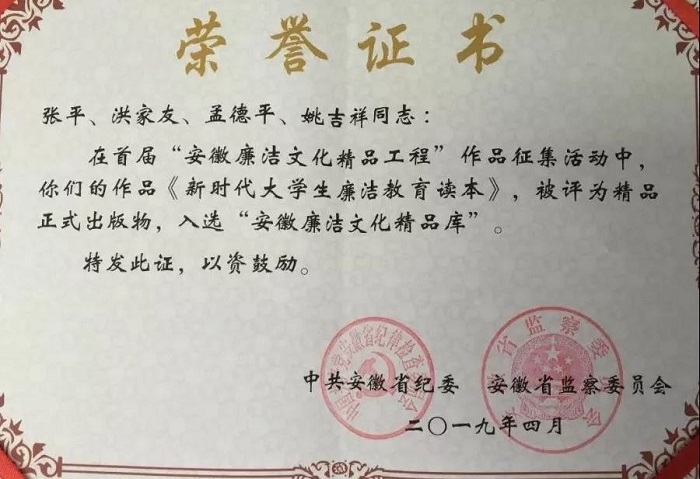 荣誉证书
张平、洪家友、孟德平、姚吉祥同志：
在首届“安徽廉洁文化精品工程”作品征集活动中，
你们的作品《新时代大学生廉洁教育读本》，被评为精品
正式出版物，入选“安徽廉洁文化精品库”。
特发此证，以资鼓励。
中共安徽省纪委 安徽省监察委员会
二〇一九年四月